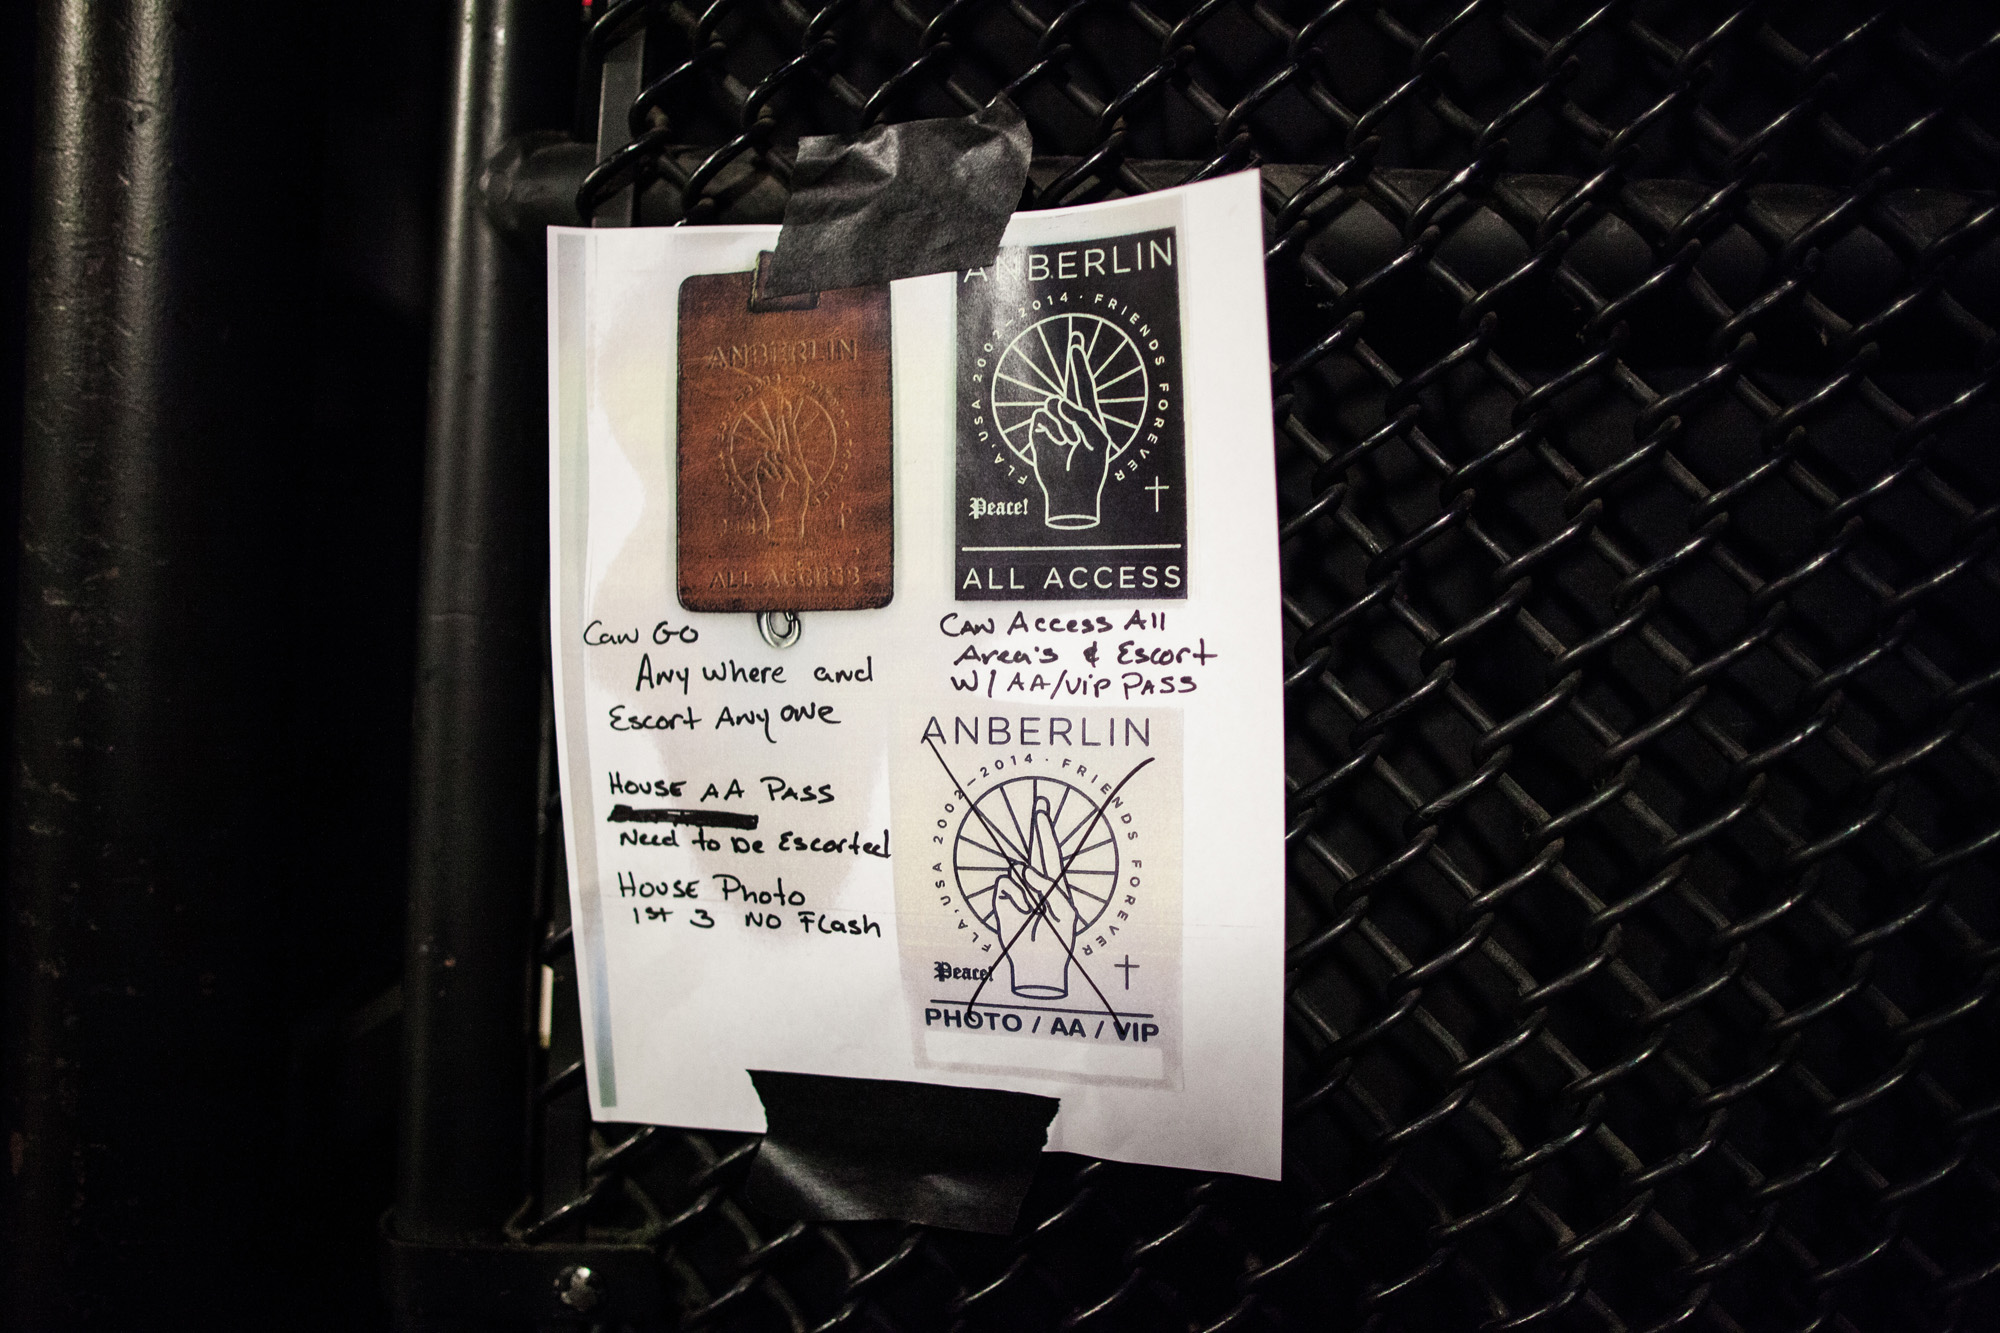 ANBERLIN
ALL ACCESS
Can Go
Any where and
Escort Any one
HOUSE AA PASS
Need to be Escorted
HOUSE Photo
1st 3 NO Flash
ANBERLIN
FLA, USA 2002–2014 · FRIENDS FOREVER
Peace!
ALL ACCESS
Can Access All
Area's & Escort
W/ AA/ViP PASS
ANBERLIN
FLA, USA 2002–2014 · FRIENDS FOREVER
Peace!
PHOTO / AA / VIP